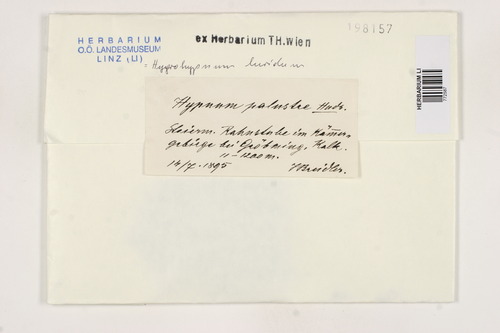 HERBARIUM
O.Ö. LANDESMUSEUM
LINZ (LI)
ex Herbarium T.H. Wien
198157
= Hygrohypnum luridum
HERBARIUM LI
Hypnum palustre Huds.
Steierm. im Kammer-
gebirge bei Gröbming, Kalk.
11–1200 m.
14/7. 1895 Breidler.